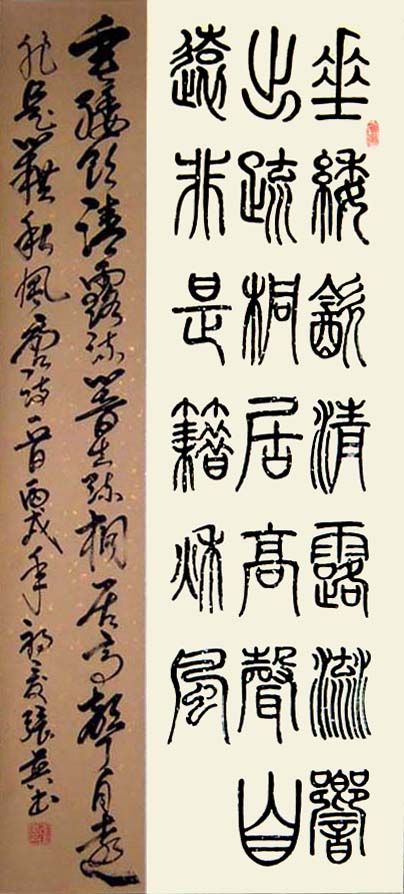 垂緌飲清露流響
出疏桐居高聲自
遠非是籍秋風
垂緌飲清露流響出疏桐居高聲自遠
非是籍秋風唐詩一首丙戌年初夏張英書